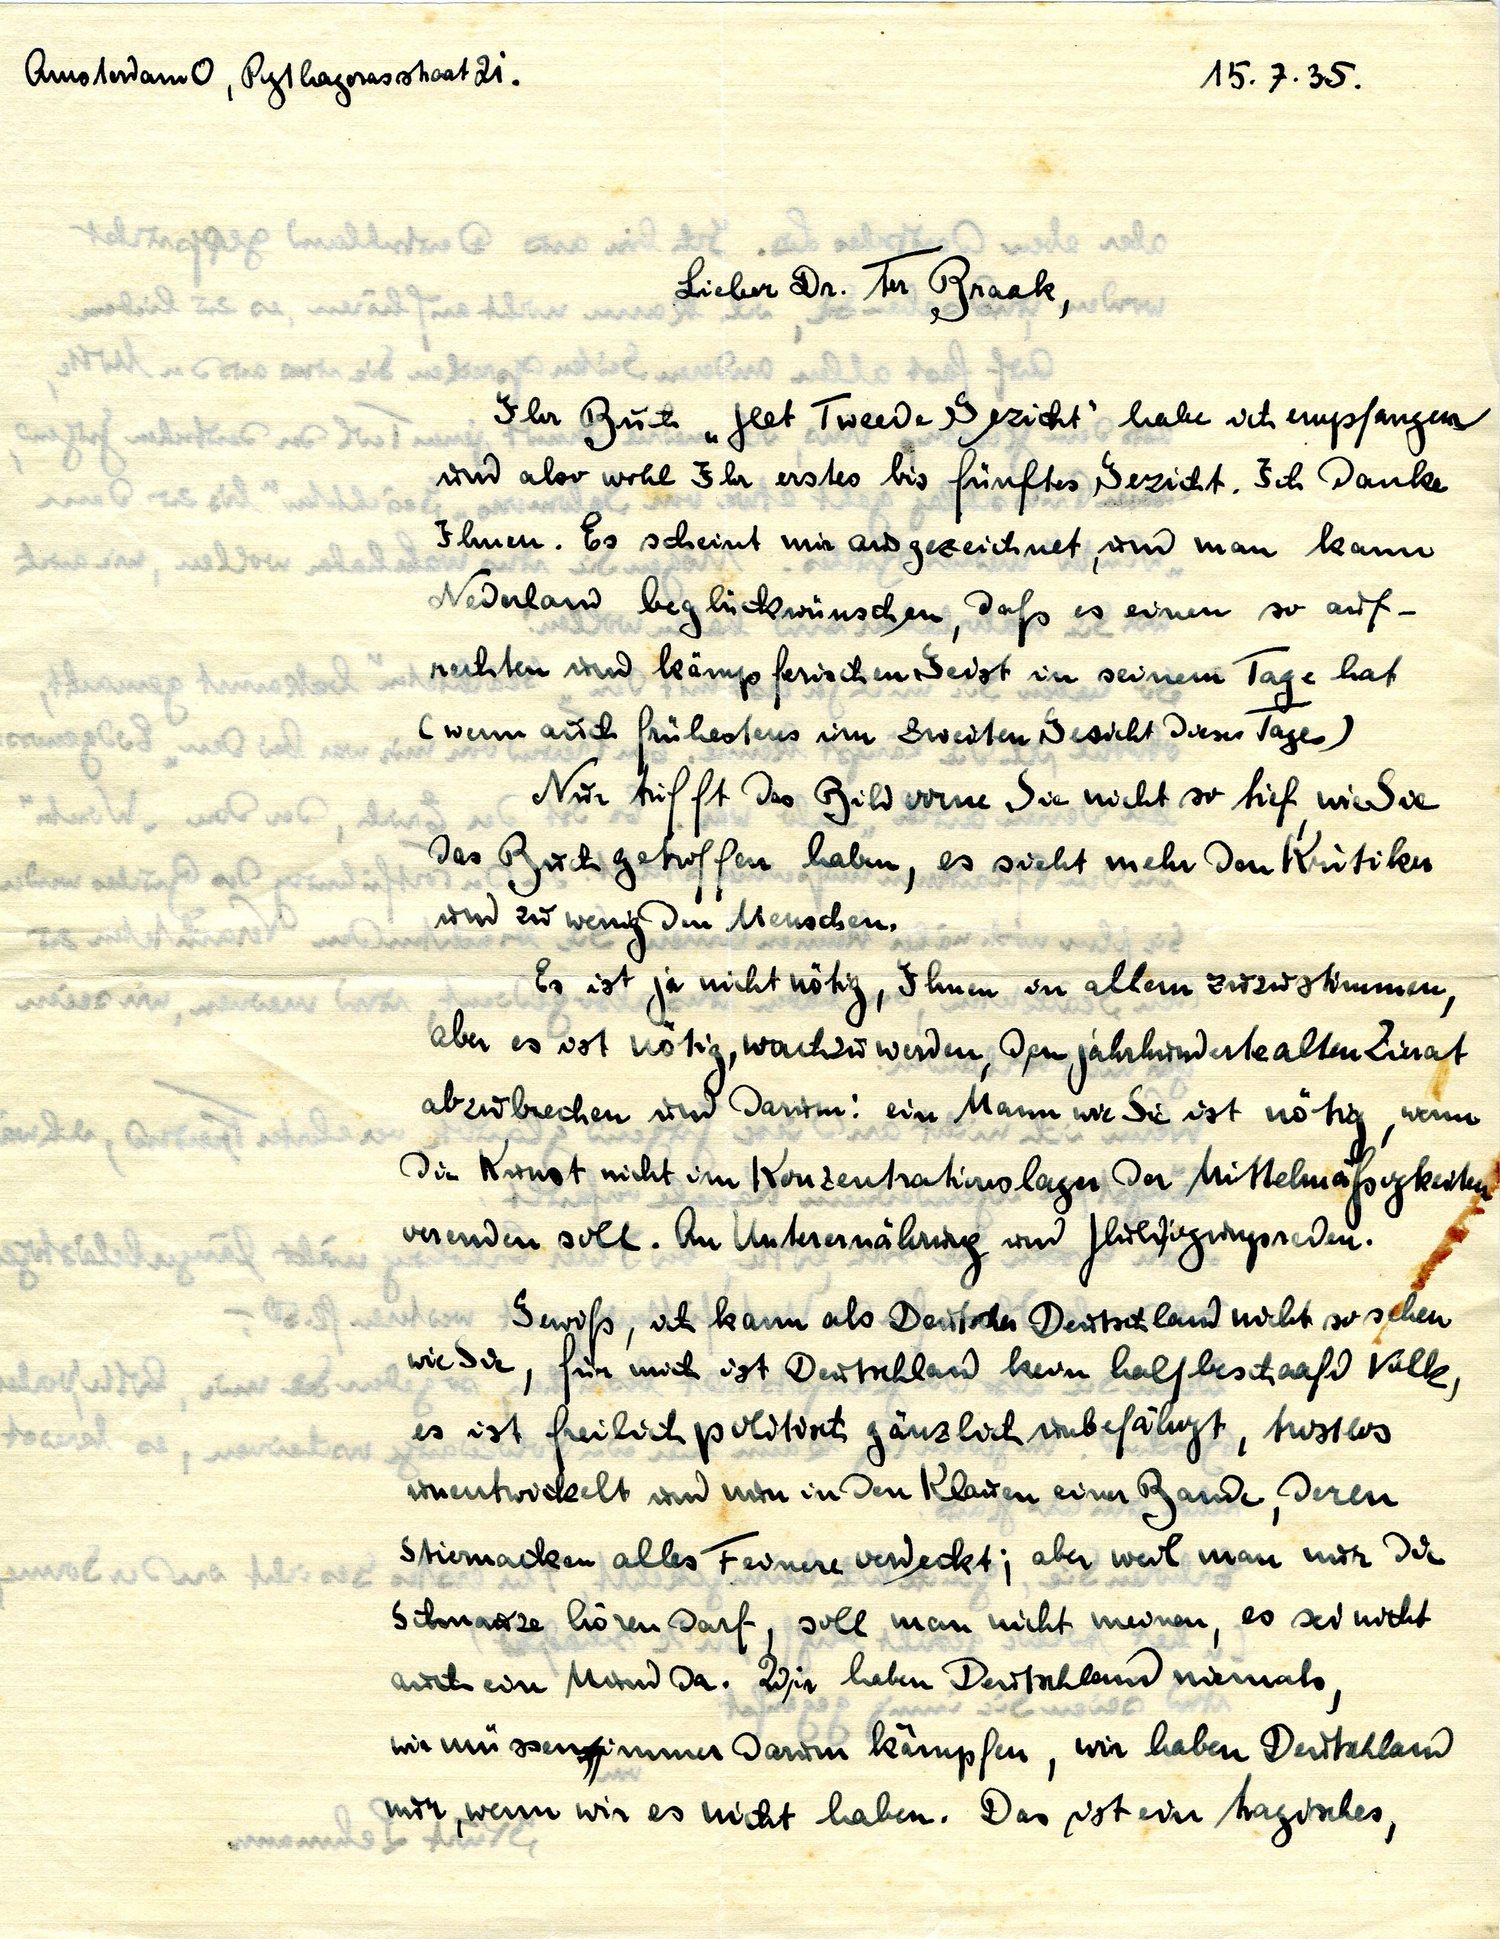 Amsterdam O, Pythagorasstraat 2i.
15. 7. 35.
Lieber Dr. Ter Braak,
Ihr Buch „Het Tweede Gezicht" habe ich empfangen
und also wohl Ihr erstes bis fünftes Gezicht. Ich danke
Ihnen. Es scheint mir ausgezeichnet, und man kann
Nederland beglückwünschen, daß es einen so auf-
rechten und kämpferischen Geist in seinem Tage hat
(wenn auch frühestens im zweiten Gesicht dieses Tages)
Nur trifft das Bild vorne Sie nicht so tief, wie Sie
das Buch getroffen haben, es sieht mehr den Kritiker
und zu wenig den Menschen.
Es ist ja nicht nötig, Ihnen in allem zuzustimmen,
aber es ist nötig, wach zu werden, den jahrhundertealten Zierat
abzubrechen und darum: ein Mann wie Sie ist nötig, wenn
die Kunst nicht im Konzentrationslager der Mittelmäßigkeiten
verenden soll. An Unterernährung und Huldigungsreden.
Gewiß, ich kann als Deutscher Deutschland nicht so sehen
wie Sie, für mich ist Deutschland kein halfbeschaafd Volk,
es ist freilich politisch gänzlich unbefähigt, trostlos
unentwickelt und nun in den Klauen einer Bande, deren
Stiernacken alles Feinere verdeckt; aber weil man nur die
Schnauze hören darf, soll man nicht meinen, es sei nicht
auch ein Mund da. Wir haben Deutschland niemals,
wir müssen immer darum kämpfen, wir haben Deutschland
nur, wenn wir es nicht haben. Das ist ein tragisches,